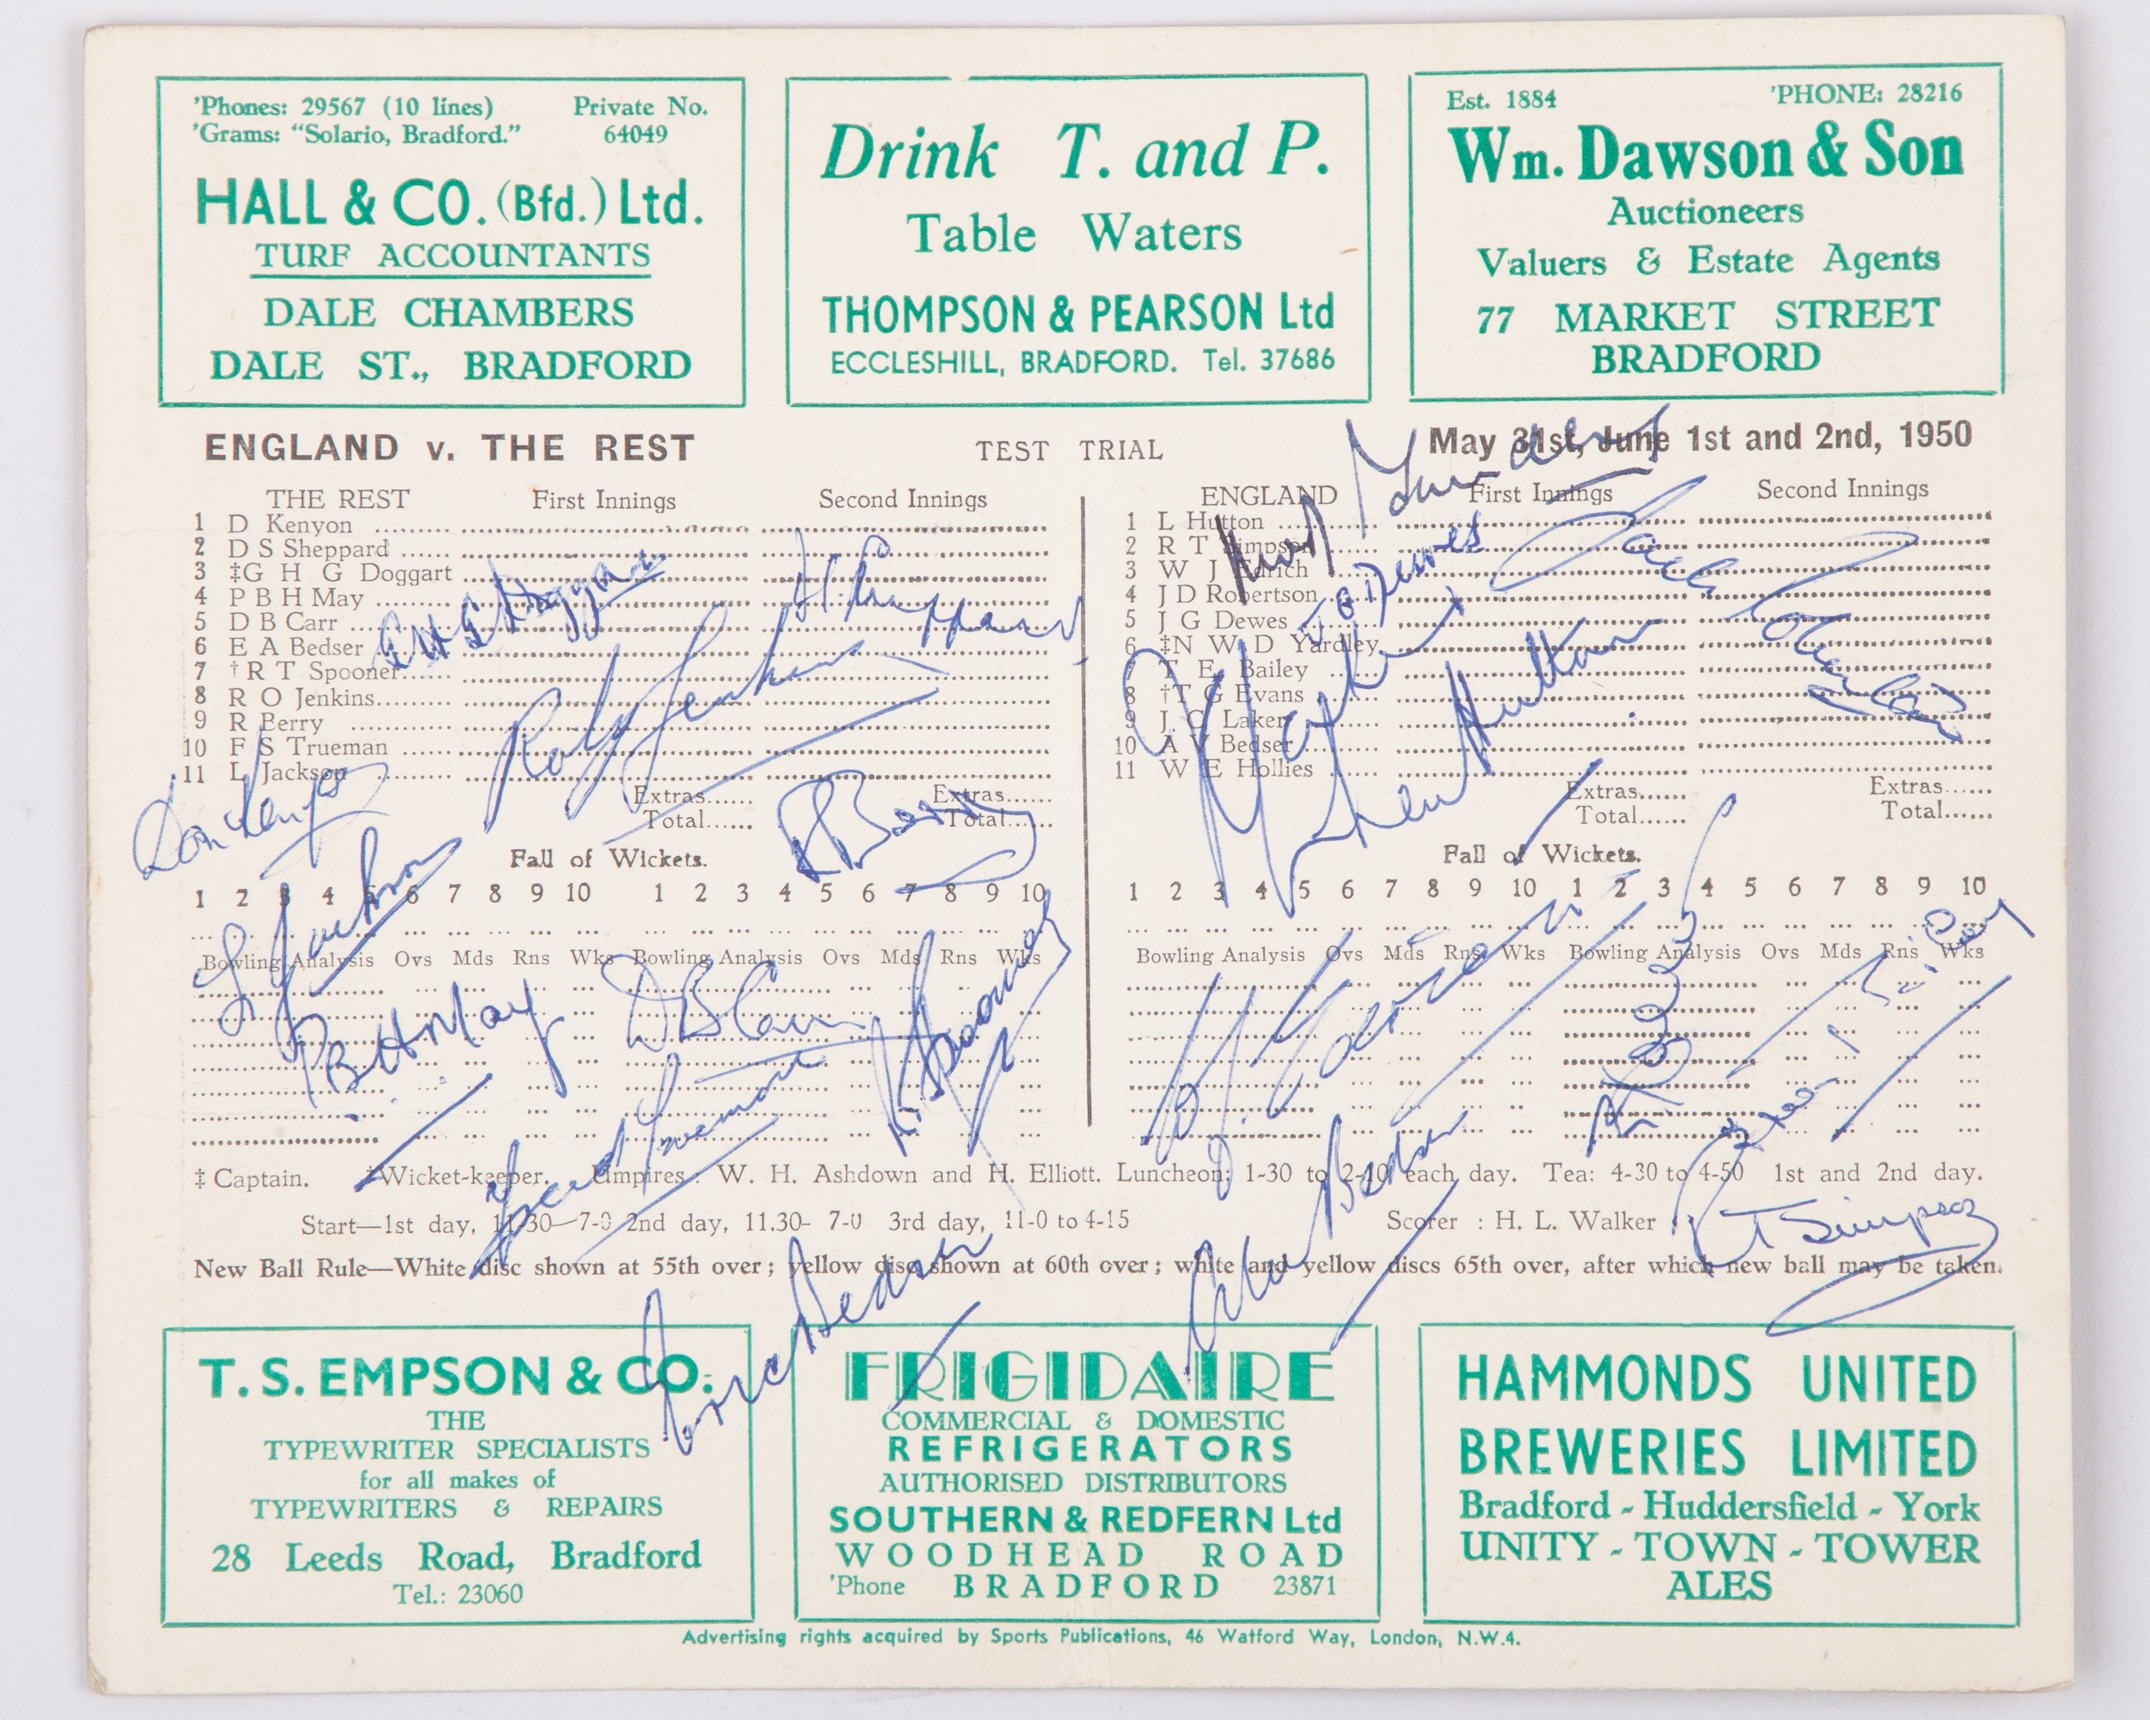 'Phones: 29567 (10 lines) Private No.
'Grams: "Solario, Bradford." 64049
HALL & CO. (Bfd.) Ltd.
TURF ACCOUNTANTS
DALE CHAMBERS
DALE ST., BRADFORD
Drink T. and P.
Table Waters
THOMPSON & PEARSON Ltd
ECCLESHILL, BRADFORD. Tel. 37686
Est. 1884 'PHONE: 28216
Wm. Dawson & Son
Auctioneers
Valuers & Estate Agents
77 MARKET STREET
BRADFORD
ENGLAND v. THE REST TEST TRIAL May 31st, June 1st and 2nd, 1950
THE REST First Innings Second Innings
1 D Kenyon
2 D S Sheppard
3 ‡G H G Doggart
4 P B H May
5 D B Carr
6 E A Bedser
7 †R T Spooner
8 R O Jenkins
9 R Berry
10 F S Trueman
11 L Jackson
Extras...... Extras......
Total...... Total......
Fall of Wickets.
1 2 3 4 5 6 7 8 9 10 1 2 3 4 5 6 7 8 9 10
Bowling Analysis Ovs Mds Rns Wks Bowling Analysis Ovs Mds Rns Wks
ENGLAND First Innings Second Innings
1 L Hutton
2 R T Simpson
3 W J Edrich
4 J D Robertson
5 J G Dewes
6 ‡N W D Yardley
7 T E Bailey
8 †T G Evans
9 J C Laker
10 A V Bedser
11 W E Hollies
Extras...... Extras......
Total...... Total......
Fall of Wickets.
1 2 3 4 5 6 7 8 9 10 1 2 3 4 5 6 7 8 9 10
Bowling Analysis Ovs Mds Rns Wks Bowling Analysis Ovs Mds Rns Wks
G H G Doggart
Ralph Jenkins
Don Kenyon
R Berry
L Jackson
P.B.H. May
D B Carr
Fred Trueman
Eric Bedser
J G Dewes
Len Hutton
Alec Bedser
R T Simpson
‡ Captain. †Wicket-keeper. Umpires: W. H. Ashdown and H. Elliott. Luncheon: 1-30 to 2-10 each day. Tea: 4-30 to 4-50 1st and 2nd day.
Start—1st day, 11-30—7-0 2nd day, 11.30- 7-0 3rd day, 11-0 to 4-15 Scorer : H. L. Walker
New Ball Rule—White disc shown at 55th over; yellow disc shown at 60th over; white and yellow discs 65th over, after which new ball may be taken.
T. S. EMPSON & CO.
THE
TYPEWRITER SPECIALISTS
for all makes of
TYPEWRITERS & REPAIRS
28 Leeds Road, Bradford
Tel.: 23060
FRIGIDAIRE
COMMERCIAL & DOMESTIC
REFRIGERATORS
AUTHORISED DISTRIBUTORS
SOUTHERN & REDFERN Ltd
WOODHEAD ROAD
'Phone BRADFORD 23871
HAMMONDS UNITED
BREWERIES LIMITED
Bradford - Huddersfield - York
UNITY - TOWN - TOWER
ALES
Advertising rights acquired by Sports Publications, 46 Watford Way, London, N.W.4.